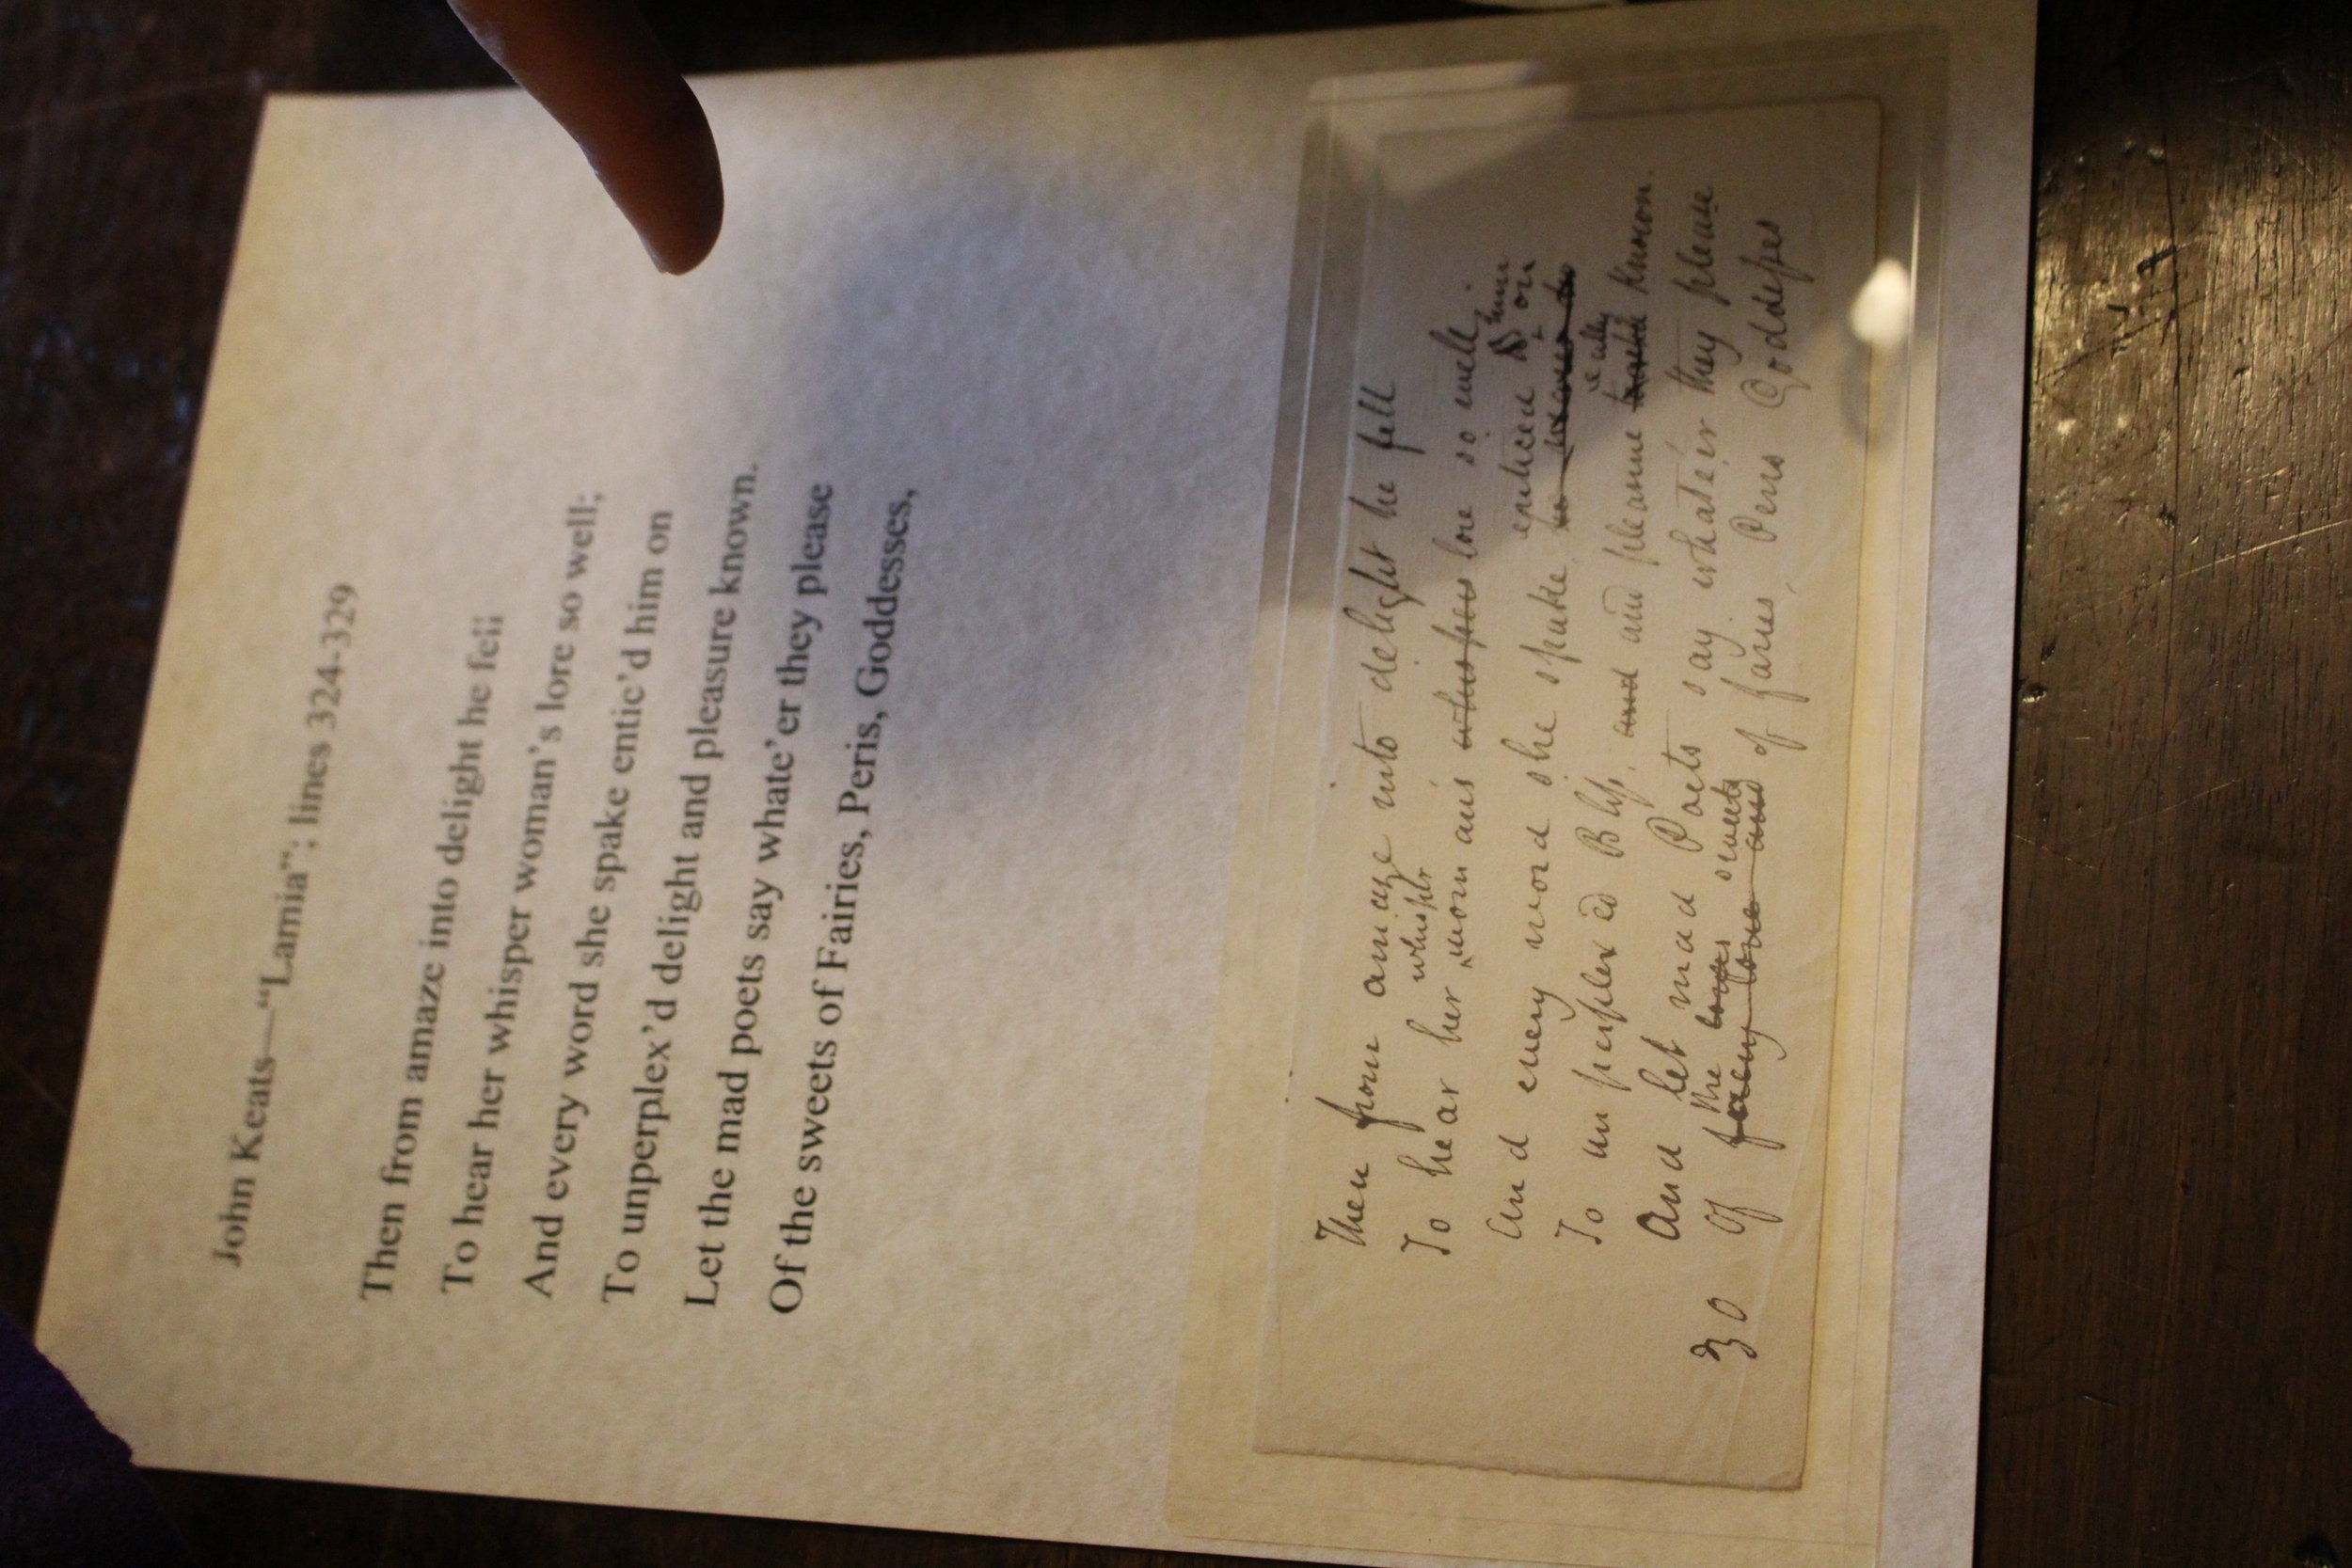 John Keats—“Lamia”; lines 324-329
Then from amaze into delight he fell
To hear her whisper woman’s lore so well;
And every word she spake entic’d him on
To unperplex’d delight and pleasure known.
Let the mad poets say whate’er they please
Of the sweets of Fairies, Peris, Goddesses,
Then from amaze into delight he fell
whisper
To hear her woman's lore so well
enticed him
And every word she spake + on
ealy
To unperplexed Bliss, and and pleasure known.
And let mad Poets say whate'er they please
the sweets
30 Of fairy lone and of faries, Peris Goddesses